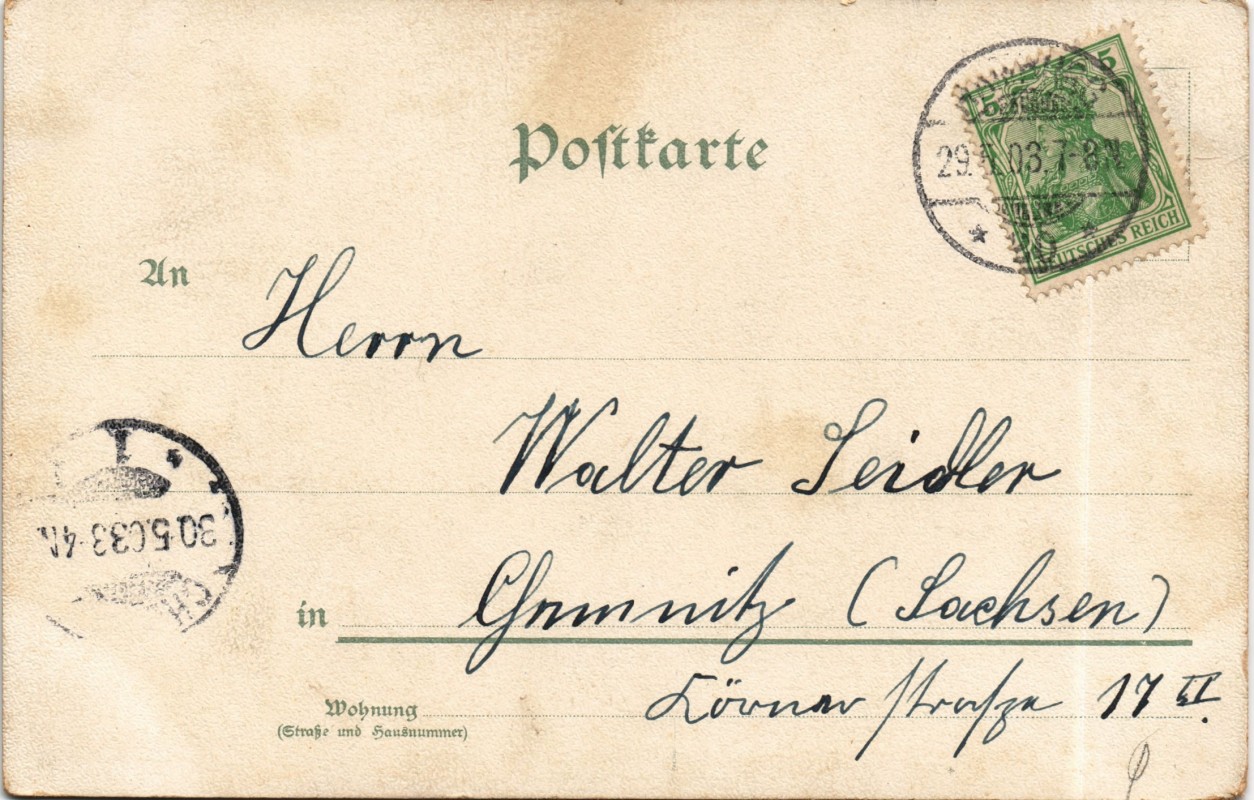 Postkarte
5 5
29.5.03.7-8N.
DEUTSCHES REICH
An
Herrn
Walter Seidler
30.5.03 3-4N.
in Chemnitz (Sachsen)
Wohnung
(Straße und Hausnummer)
Körnerstraße 17 II.